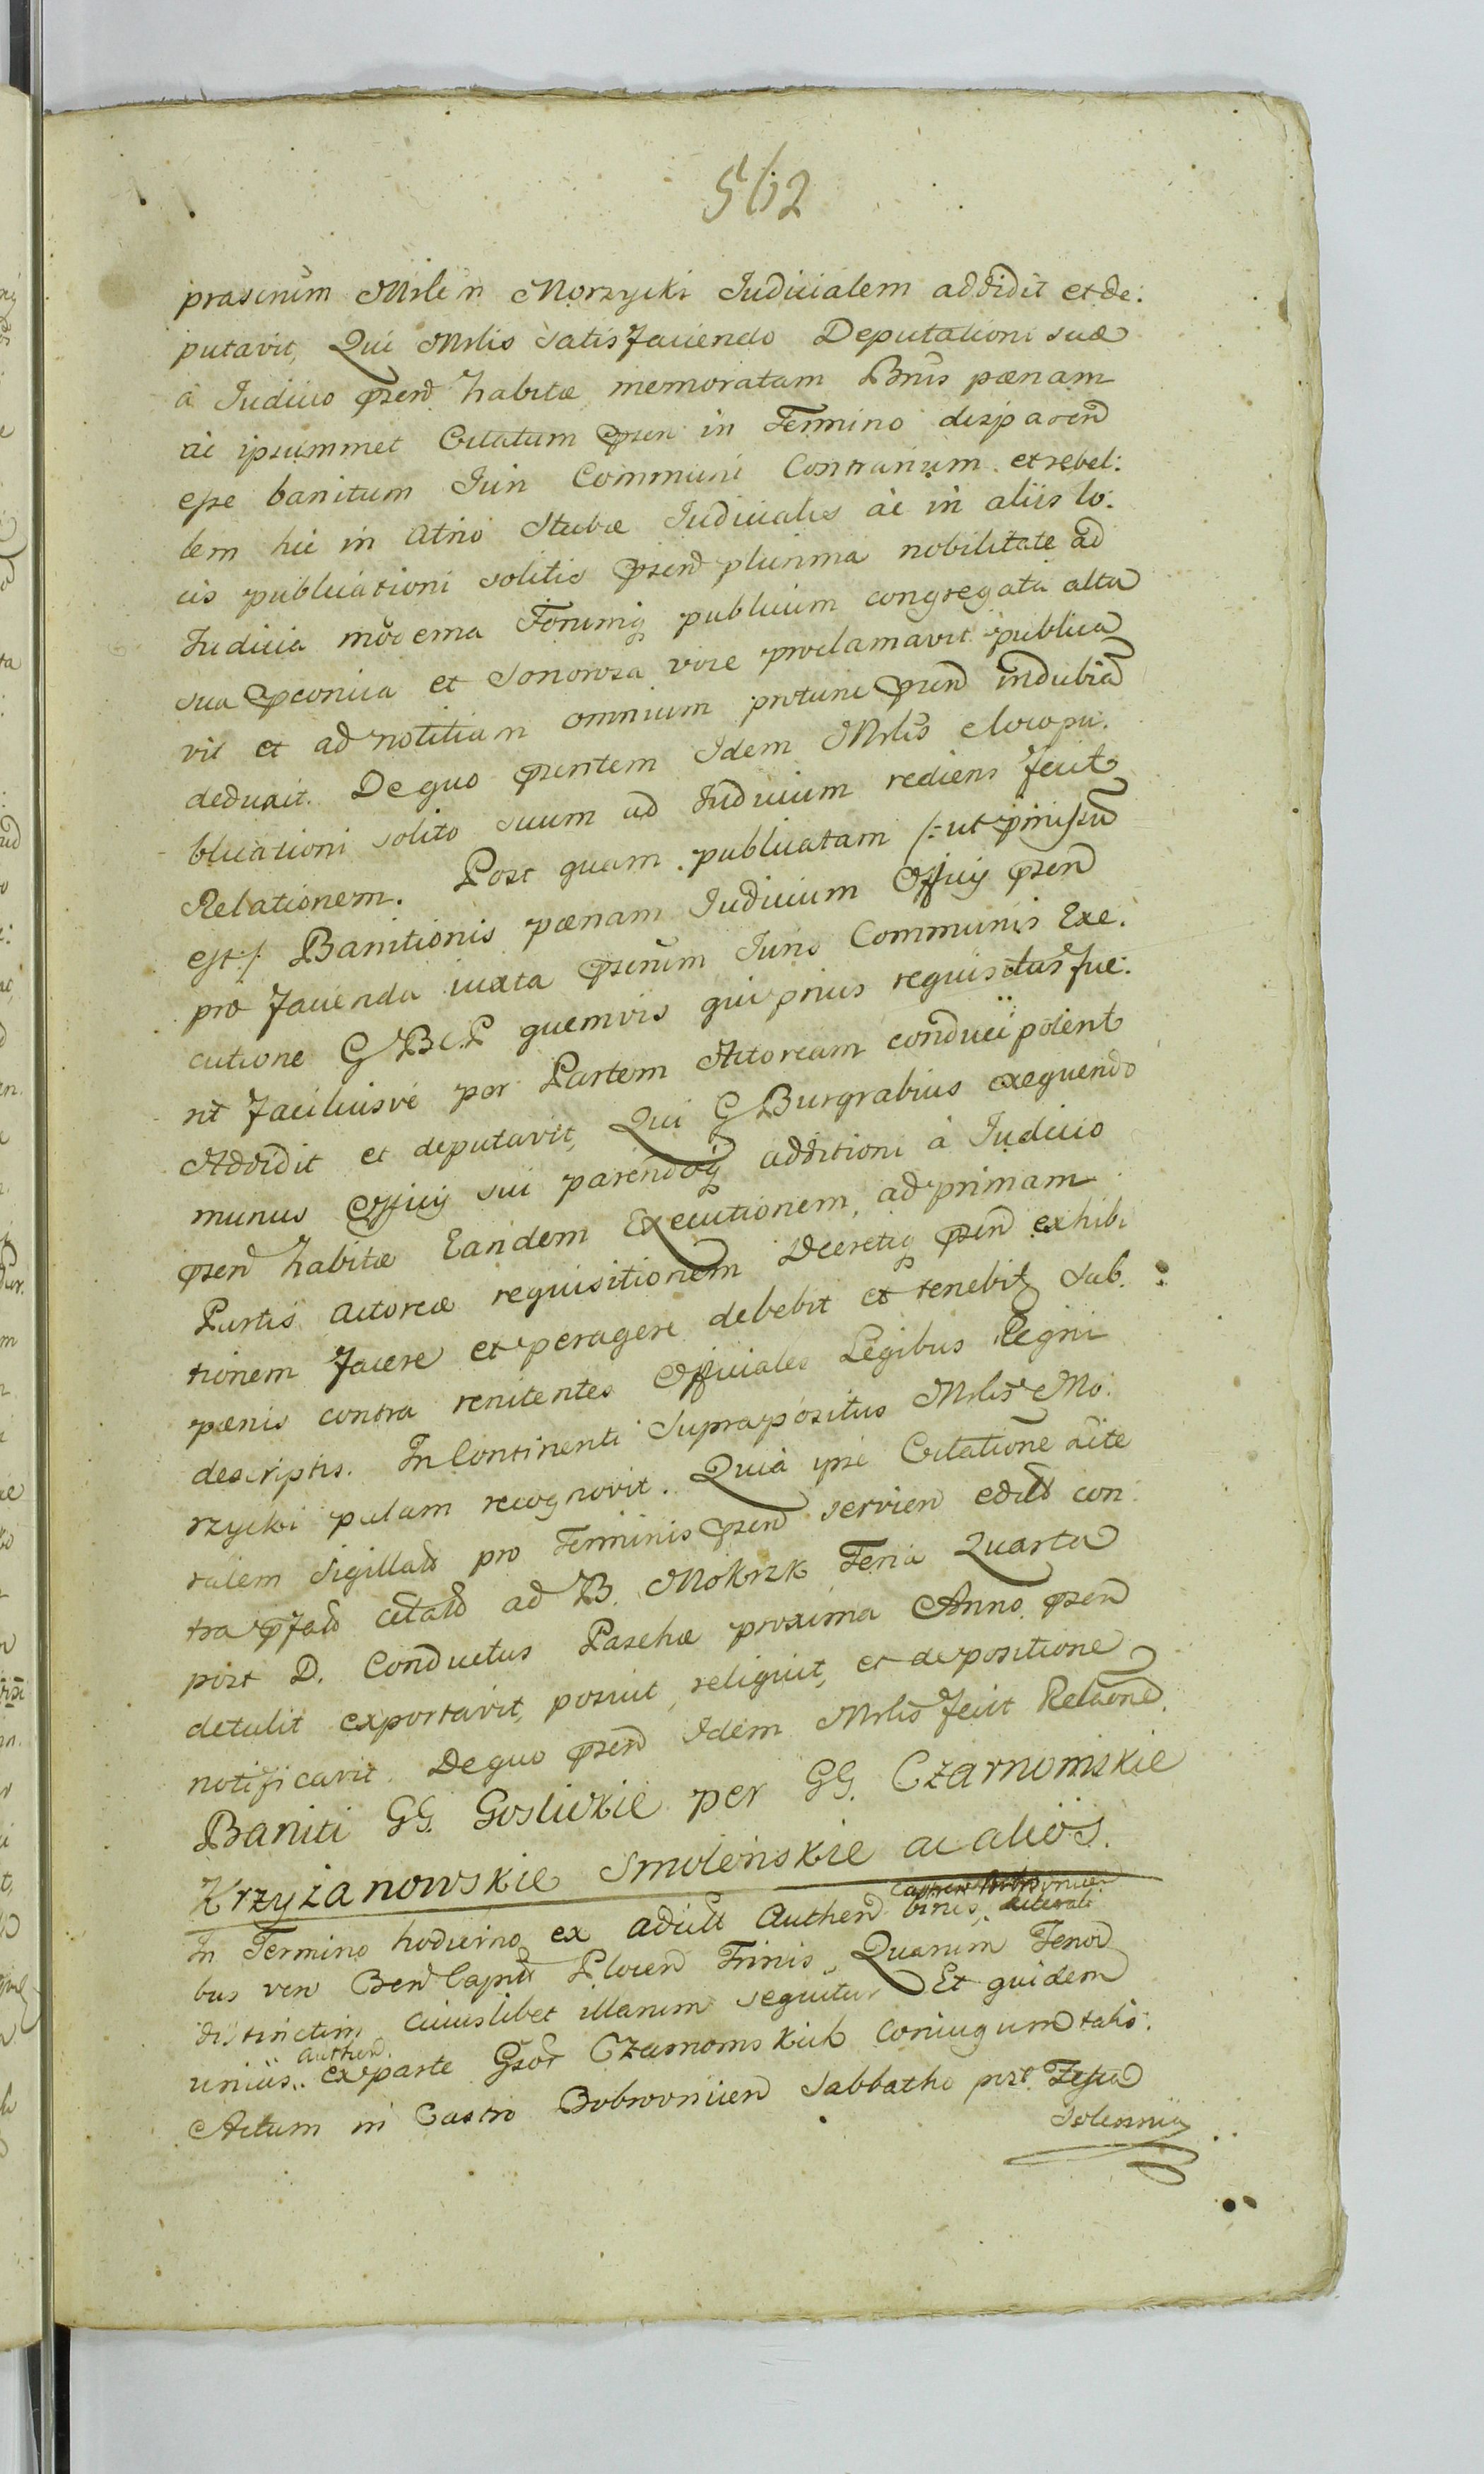 562
prasenim Mrlem Morzycki Judicialem addidit et de:
putavit, Qui Mrlis satisfaciendo Deputationi suæ
à Judicio pͬsen̄ habitæ memoratam Bnis pænam
ac ipsummet Citatum pͬsen in Termino disparen̄
esse banitum Juri Communi Contrarium et rebel:
lem hic in Atrio Stubæ Judicialis ac in aliis lo:
cis publicationi solitis pͬsen̄ plurima nobilitate ad
Judicia moderna Forumq publicum congregata alta
sua pͬconica et sonorosa voce proclamavit publica
vit et ad notitiam omnium protunc pͬsen̄ indubiā
deduxit. De quo pͬsentem Idem Mrlis e loco pu:
blicationi solito suum ad Judicium rediens fecit
Relationem. Post quam publicatam /: ut pͬmissū
est :/ Banitionis pænam Judicium Officij pͬsen̄
pro facienda iuxta pͬsenim Juris Communis Exe:
cutione G B C P quemvis qui prius requisitus fue:
rit faciliusve per Partem Actoream conduci poterit
Addidit et deputavit, Qui G Burgrabius exequendo
munus Officij sui parendoq additioni à Judicio
pͬsen̄ habitæ Eandem Executionem, ad primam
Partis Actoreæ requisitionem Decretiq pͬsen̄ exhibi
tionem facere et peragere debebit et tenebit sub
pænis contra renitentes Officiales Legibus Regni
descriptis. In Continenti Suprapositus Mrlis Mo:
rzycki palam recognovit. Quia ipse Citatione Lite
ralem Sigillatā pro Terminis pͬsen̄ servien̄ editā con:
tra pͬfatā citatā ad B. Mokrzk Feria Quarta
post D. Conductus Paschæ proxima Anno pͬsen̄
detulit exportavit, posuit, reliquit, et de positione
notificavit. De quo pͬsen̄ Idem Mrlis fecit Relaone.
Baniti GG. Goslickie per GG. Czarnomskie
Krzyżanowskie Smoleńskie ac aliōs.
Castren Bobrovnicen
In Termino hodierno ex aductt Authen̄ binis, Literali
bus vero Ben̄ Captū Plocen̄ Trinis, Quarum Tenor
distinctim cuiuslibet illarum sequitur Et quidem
Authen̄
unius .. ex parte Gsor̄ Czarnomskich Coniugum talis:
Actum in Castro Bobrovnicen̄ Sabbatho post Festa
Solennia